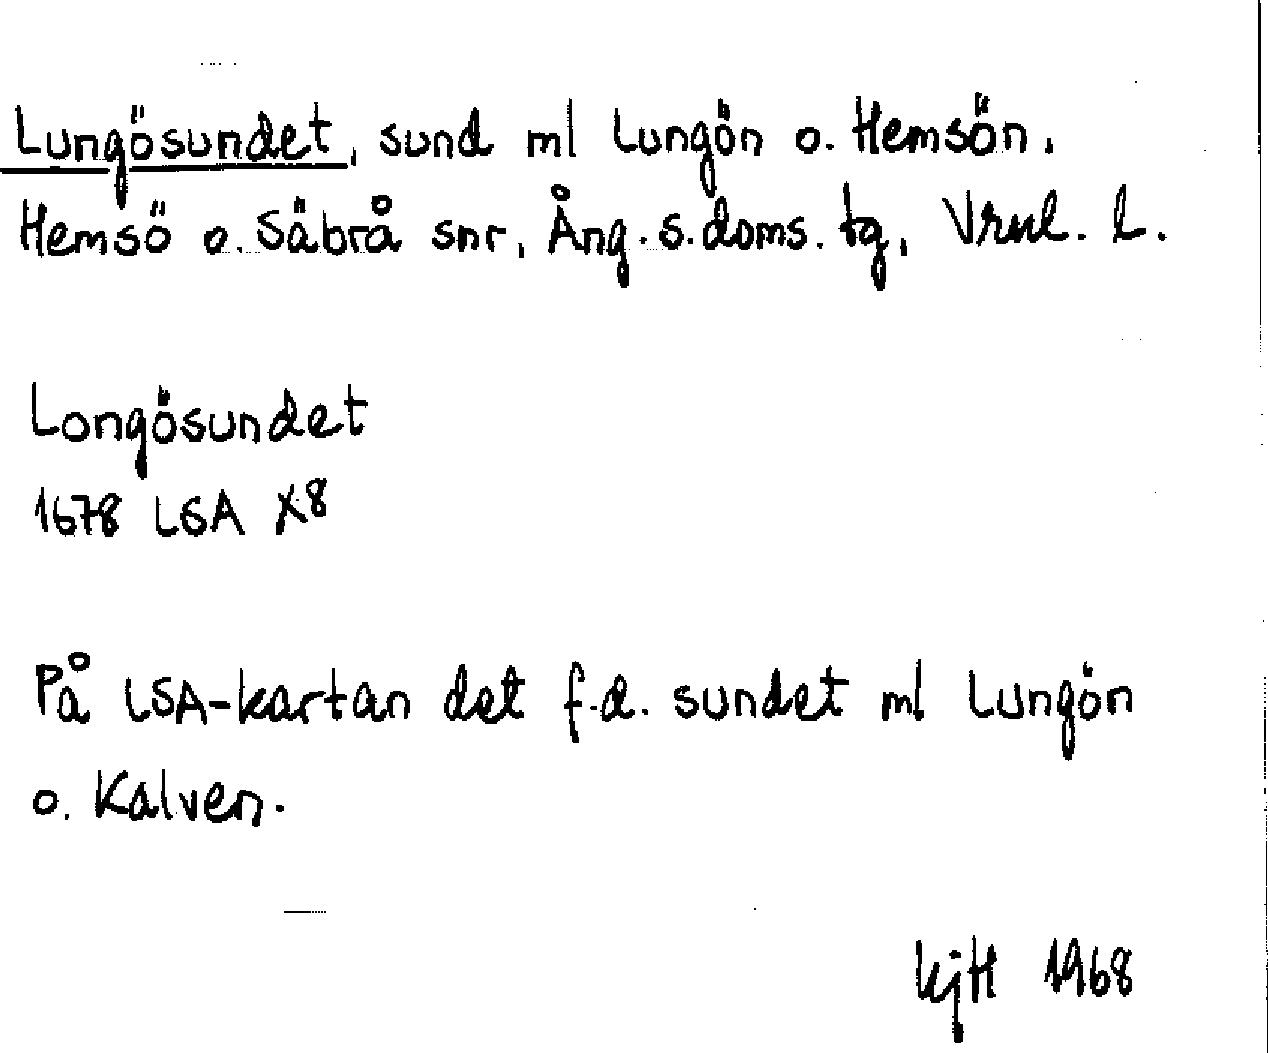 Lungösundet, sund ml Lungön o. Hemsön,
Hemsö o. Säbrå snr, Ång. s. doms. tg, Vrnl. L.
Longösundet
1678 LSA X8
På LSA-kartan det f.d. sundet ml Lungön
o. Kalven.
KjH 1968